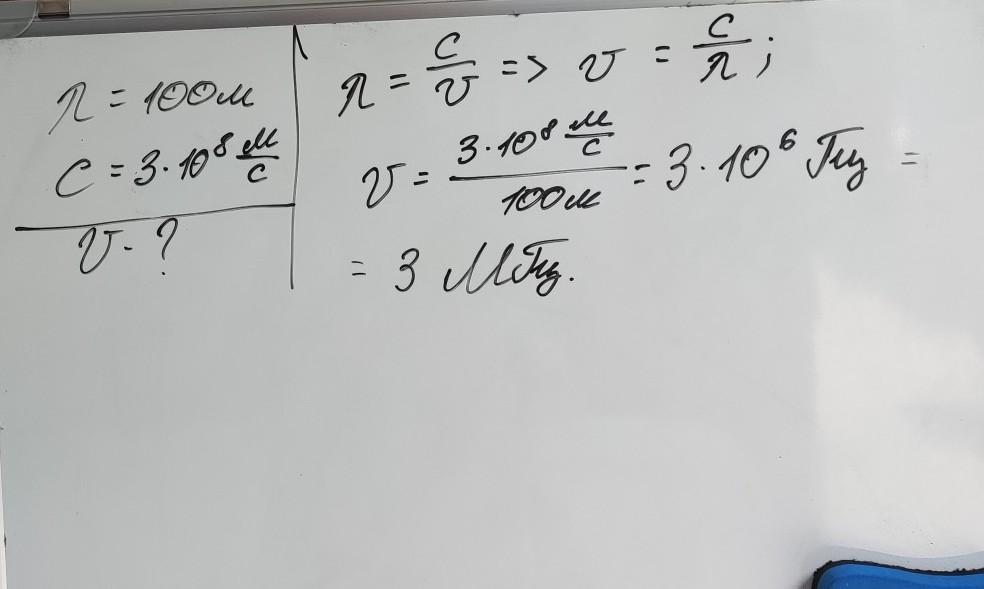 λ = 100м
c = 3·10⁸ м/с
ν - ?
λ = c/ν => ν = c/λ;
ν = 3·10⁸ м/с / 100м = 3·10⁶ Гц =
= 3 МГц.